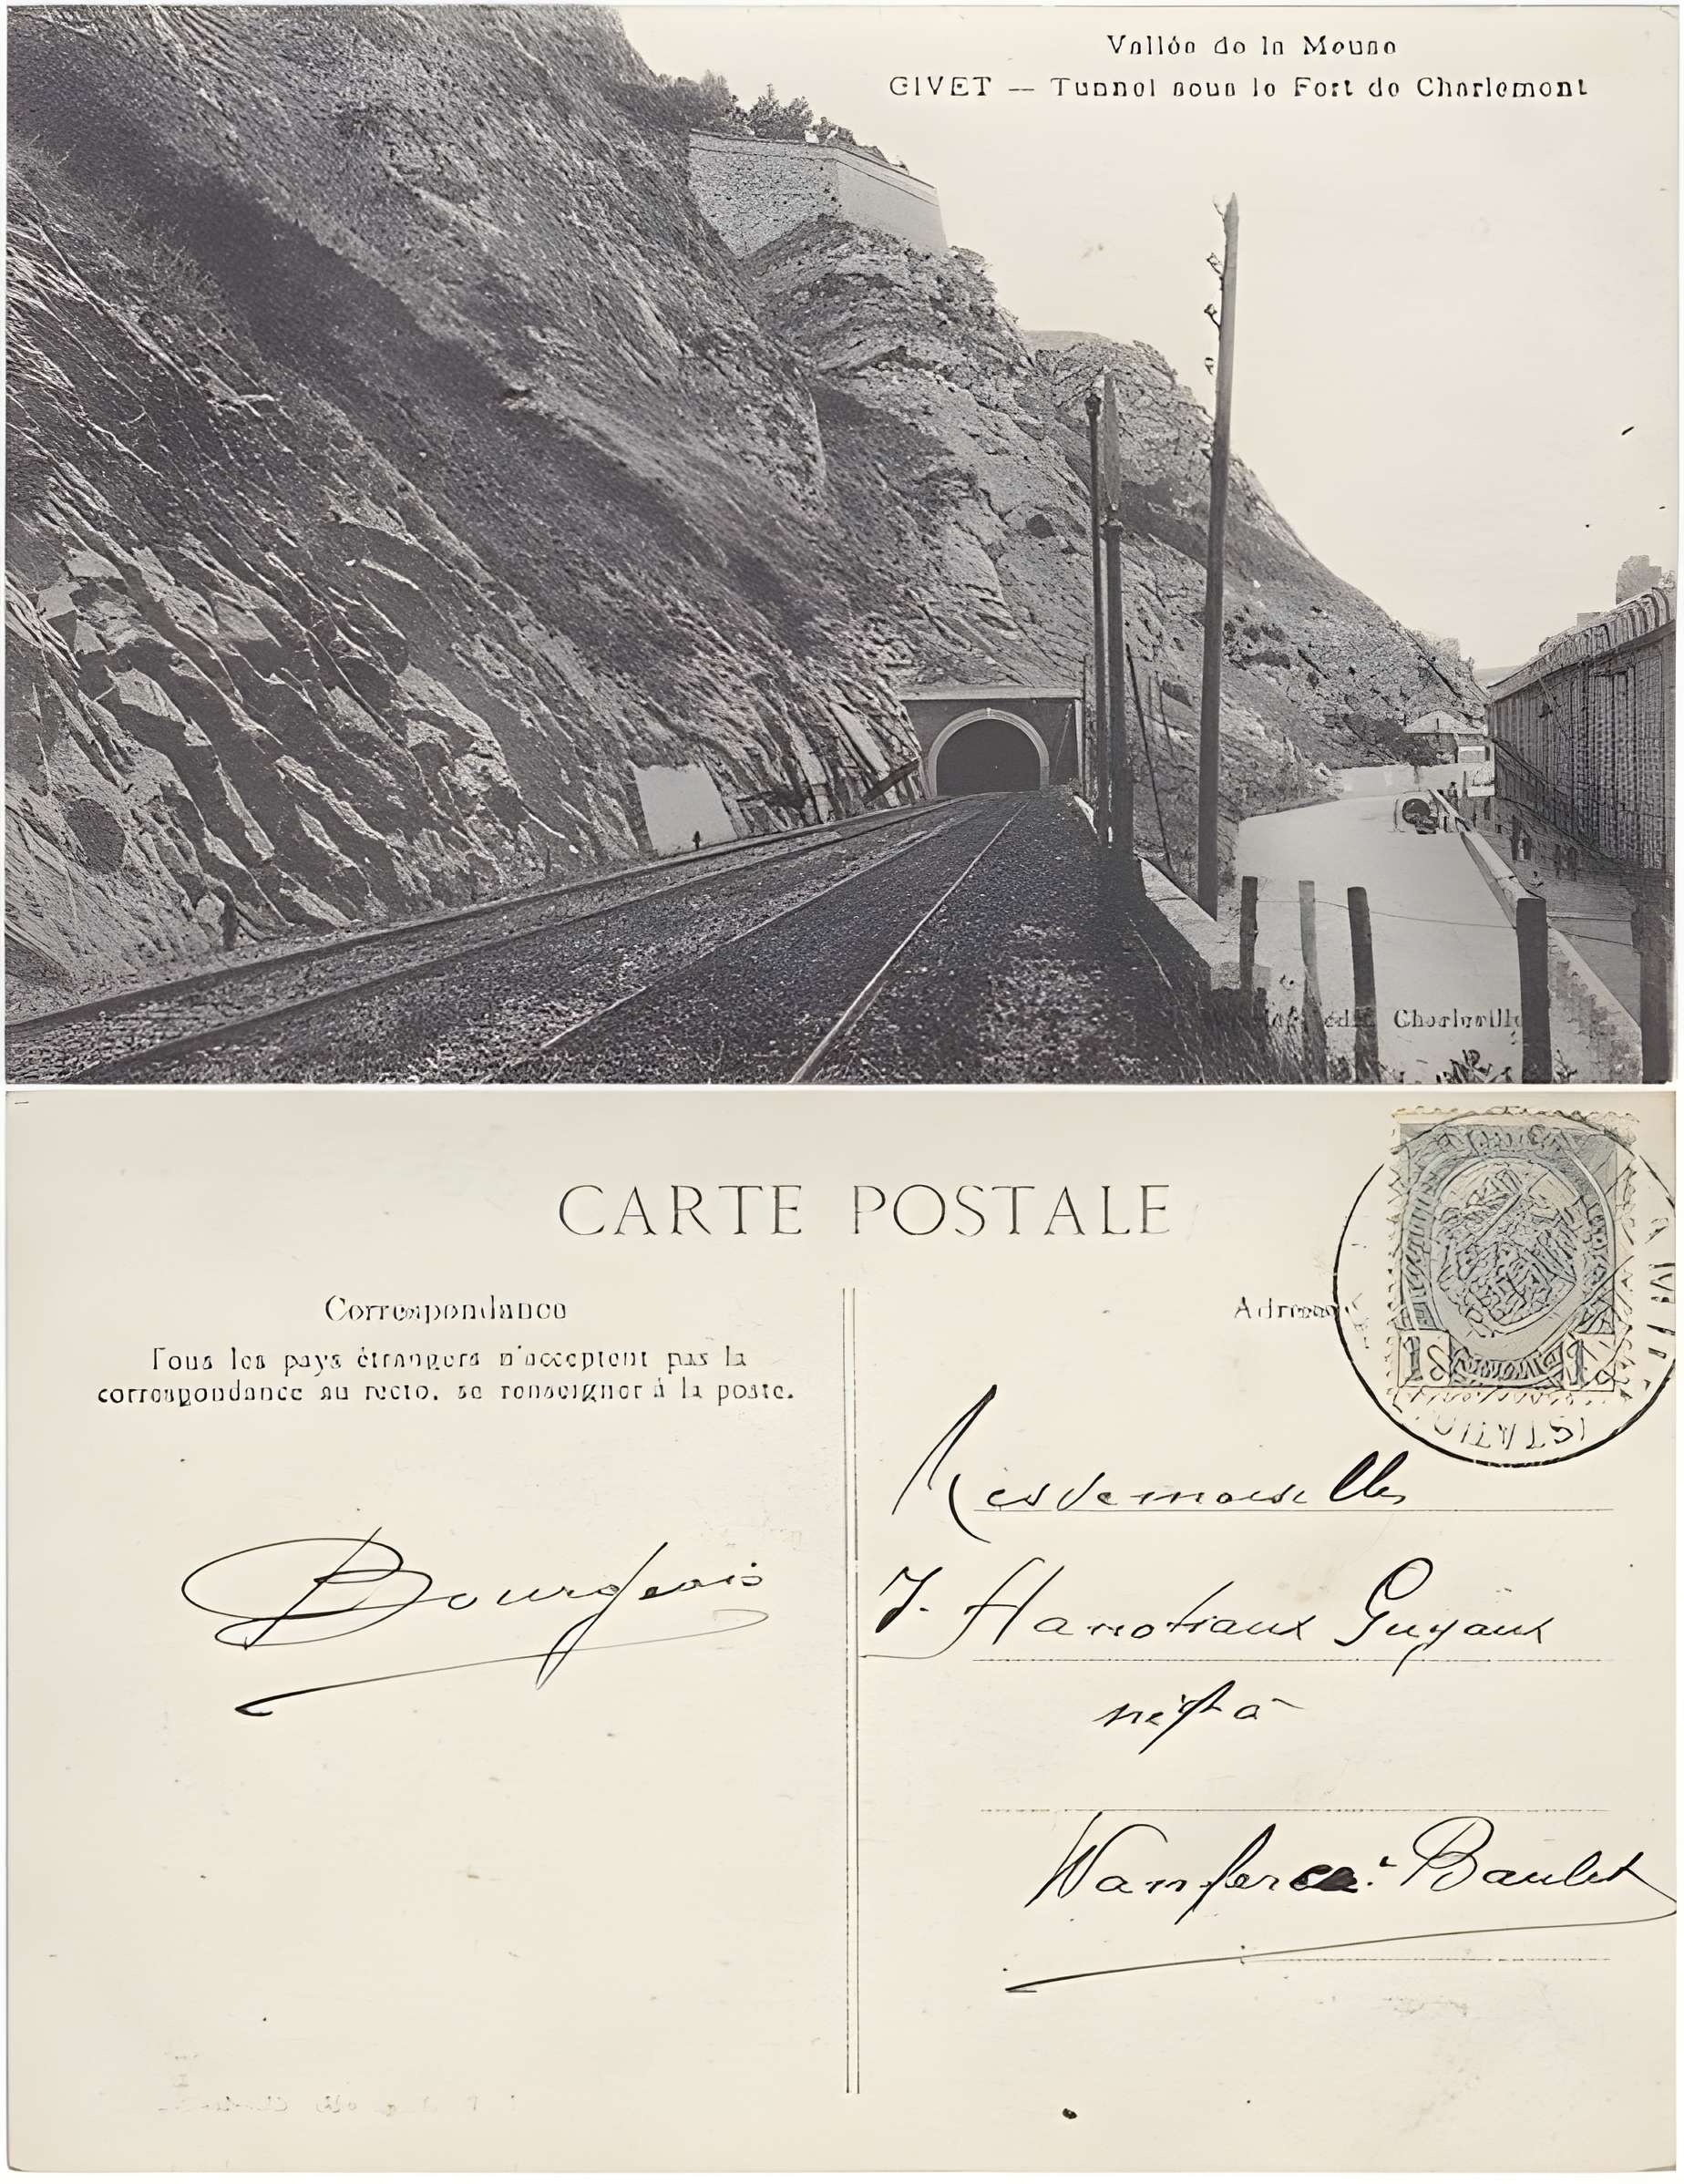 Vallée de la Meuse
GIVET — Tunnel sous le Fort de Charlemont
édit. Charleville
CARTE POSTALE
Correspondance
Tous les pays étrangers n'acceptent pas la
correspondance au recto, se renseigner à la poste.
Adresse
1 1
Bourgeois
Mesdemoiselles
J. Hanotiaux Guyaux
à
Wanfercée Baulet